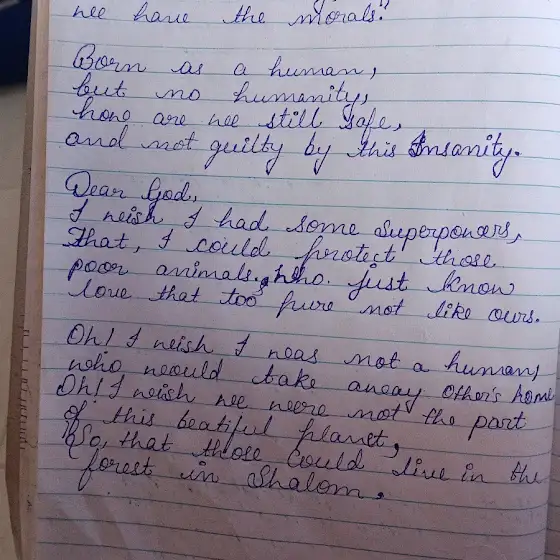 we have the morals."
Born as a human,
but no humanity,
how are we still safe,
and not guilty by this Insanity.
Dear God,
I wish I had some superpowers,
That, I could protect those
poor animals, who just know
love that too pure not like ours.
Oh! I wish I was not a human,
who would take away other's home
Oh! I wish we were not the part
of this beatiful planet,
So, that those could live in the
forest in Shalom.